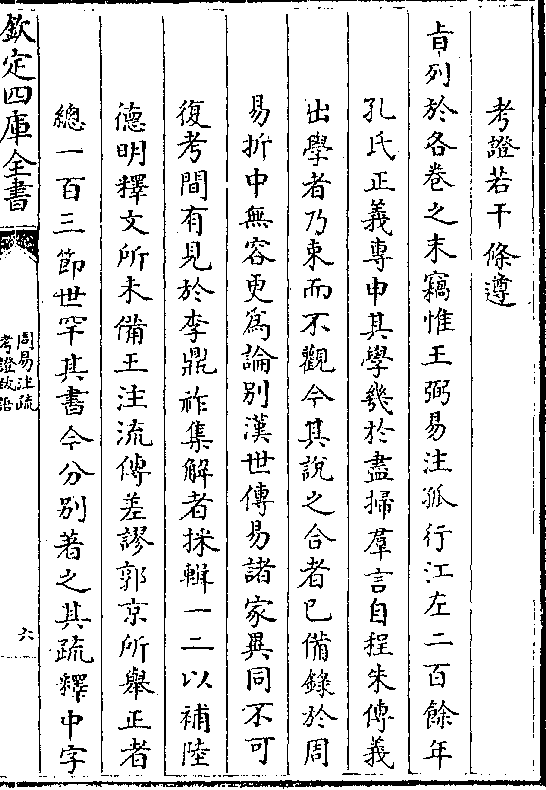 考證若干條遵
旨列於各卷之末竊惟王弼易注孤行江左二百餘年
孔氏正義專申其學幾於盡掃羣言自程朱傳義
出學者乃束而不觀今其説之合者已備錄於周
易折中無容更爲論别漢世傳易諸家異同不可
復考間有見於李鼎祚集解者採輯一二以補陸
德明釋文所未備王注流傳差謬郭京所舉正者
總一百三節世罕其書今分别著之其疏釋中字
欽定四庫全書
周易注疏
考證跋語
六